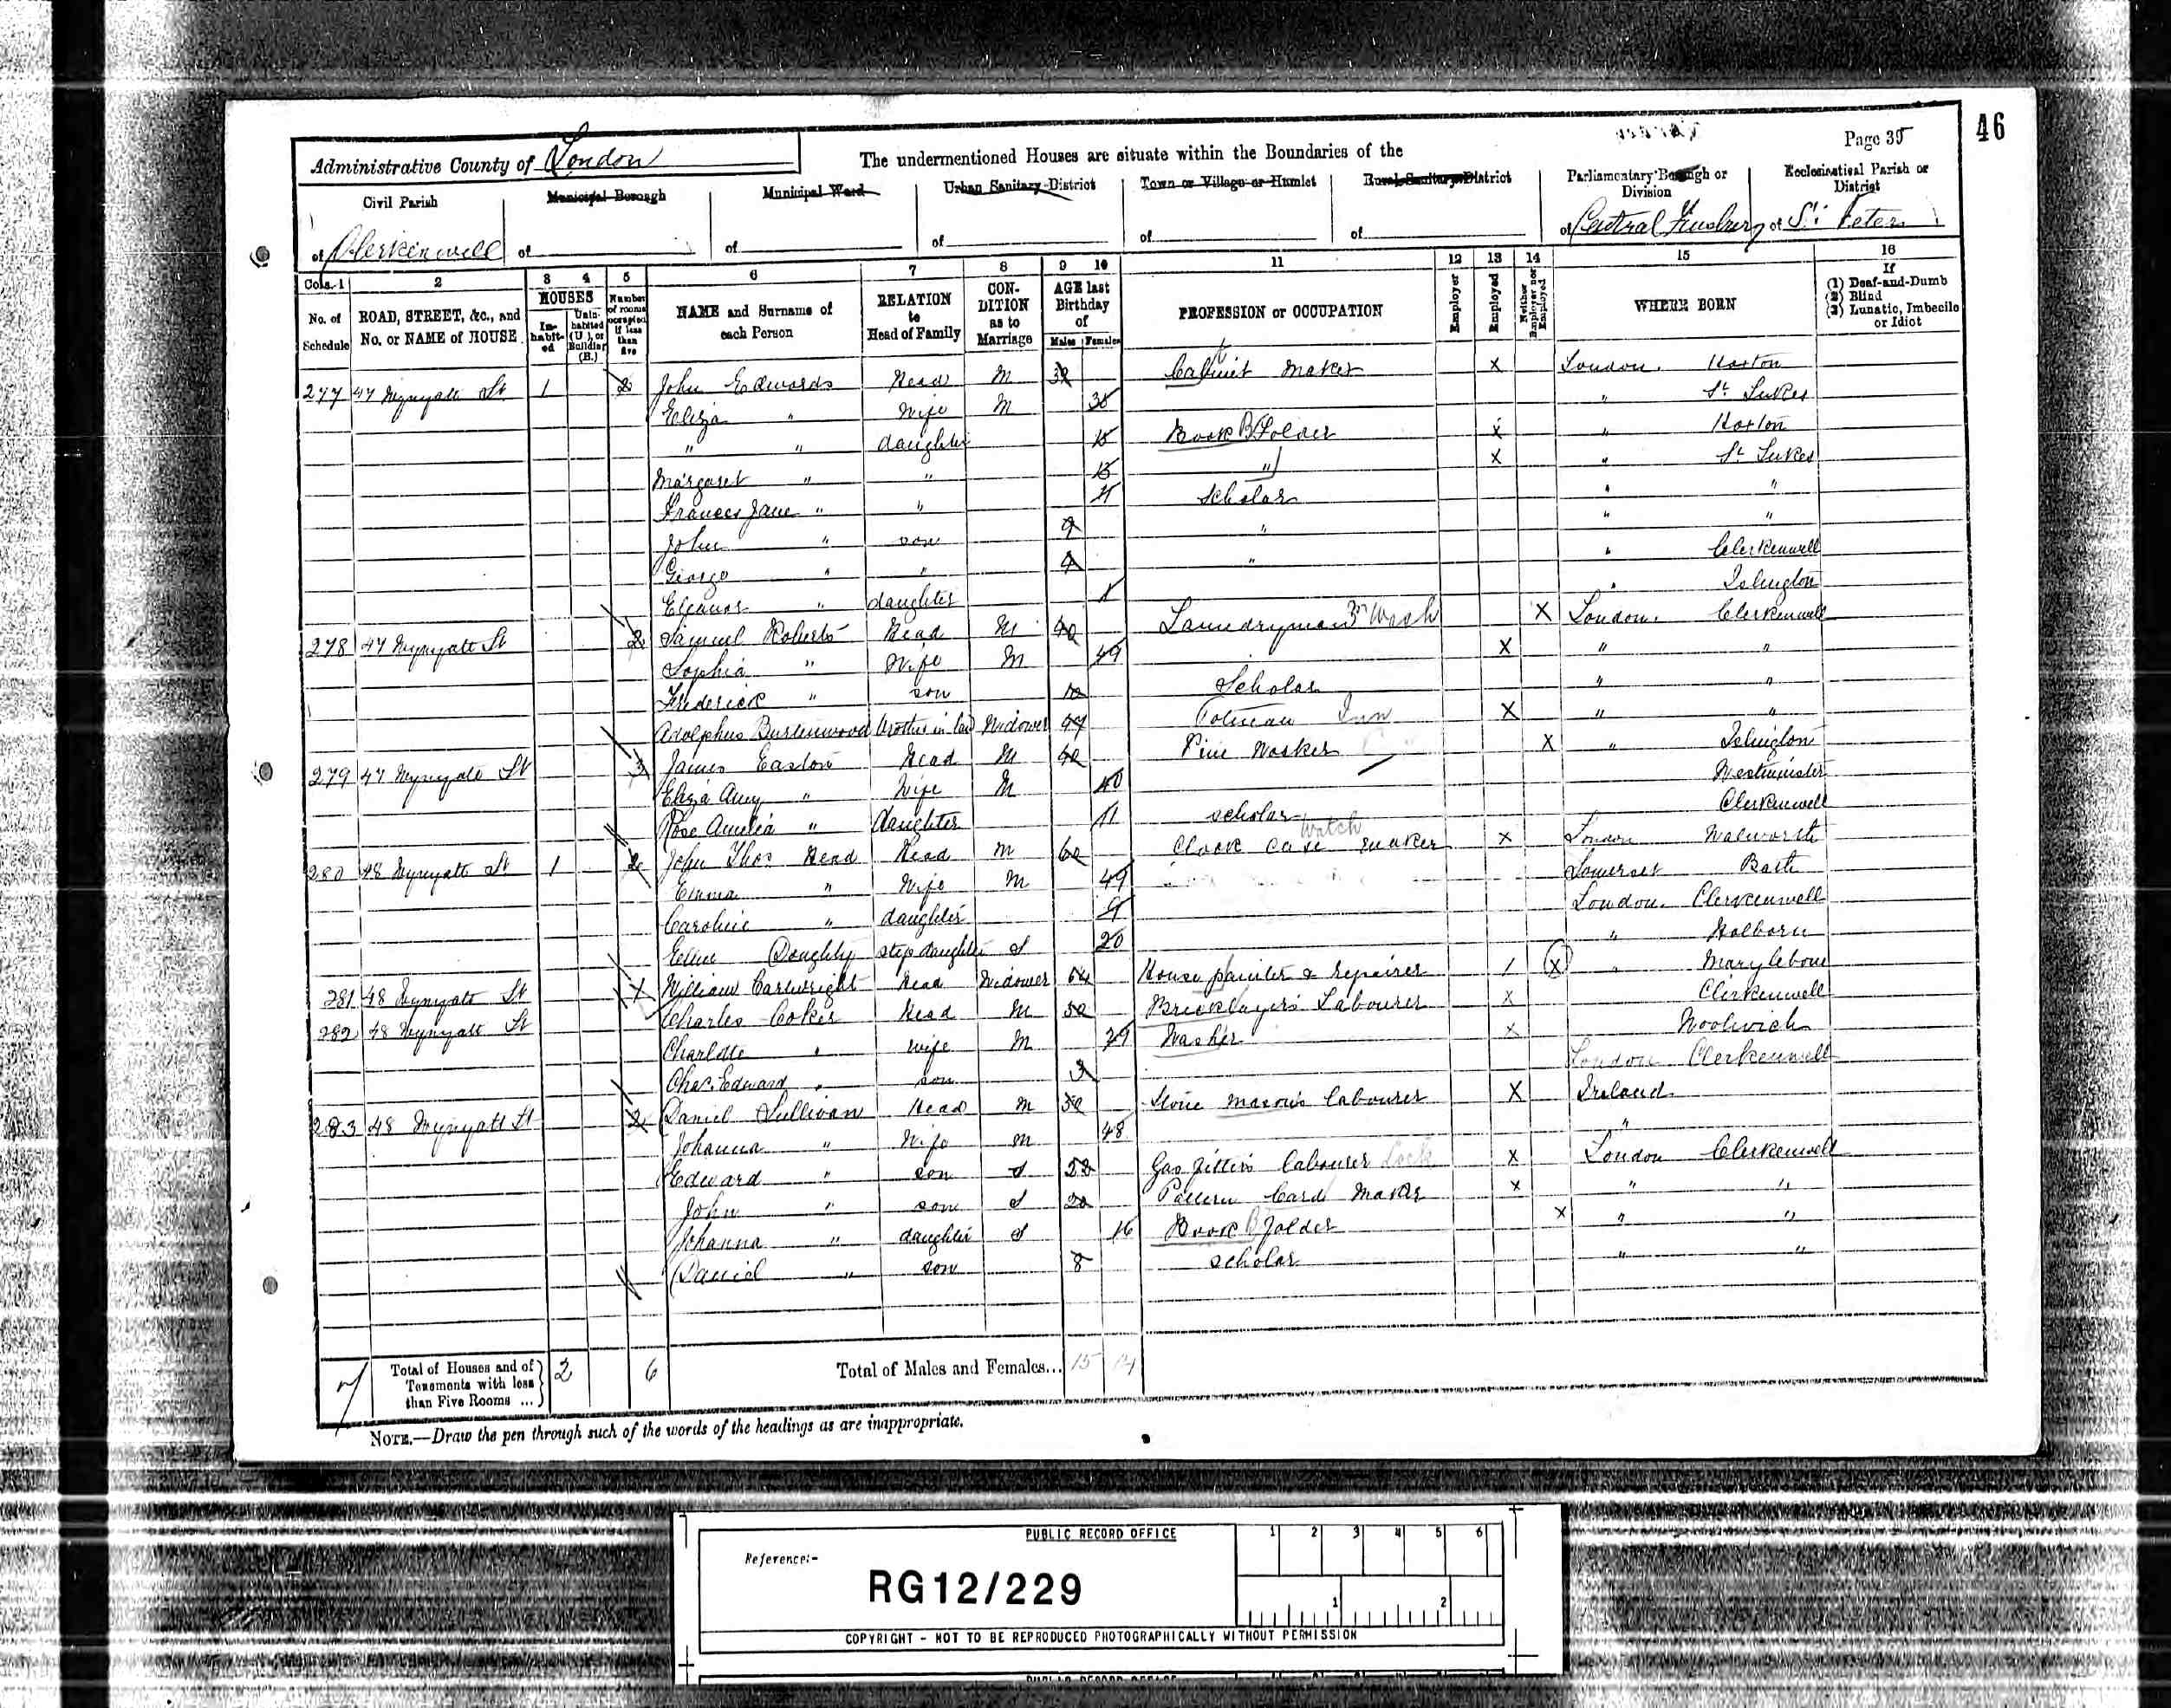 46
Page 35
Administrative County of London
The undermentioned Houses are situate within the Boundaries of the
Civil Parish
Municipal Borough
Municipal Ward
Urban Sanitary District
Town or Village or Hamlet
Rural Sanitary District
Parliamentary Borough or Division
Ecclesiastical Parish or District
of Clerkenwell of of of of of of Central Finsbury of St. Peter
Cols. 1 2 3 4 5 6 7 8 9 10 11 12 13 14 15 16
No. of Schedule
ROAD, STREET, &c., and No. or NAME of HOUSE
HOUSES
Inhabited
Uninhabited (U.), or Building (B.)
Number of rooms occupied if less than five
NAME and Surname of each Person
RELATION to Head of Family
CONDITION as to Marriage
AGE last Birthday of
Males Females
PROFESSION or OCCUPATION
Employer
Employed
Neither Employer nor Employed
WHERE BORN
If
(1) Deaf-and-Dumb
(2) Blind
(3) Lunatic, Imbecile or Idiot
277 47 Wynyatt St 1 2 John Edwards Head M Cabinet Maker X London. Hoxton
Eliza " Wife M " St Lukes
" " daughter 15 Book Folder X " Hoxton
Margaret " " " X " St Lukes
Frances Jane " " 11 Scholar " "
John " son 9 " " "
George " " 4 " " Clerkenwell
Eleanor " daughter 1 " Islington
278 47 Wynyatt St 2 Samuel Roberts Head M Laundryman Wash X London. Clerkenwell
Sophia " Wife M 49 X " "
Frederick " son 10 Scholar " "
Adolphus brother in law Widower Potman Inn X " "
279 47 Wynyatt St 3 James Easton Head M Worker X " Islington
Eliza Amy " Wife M 40 Westminster
Rose Amelia " daughter 11 scholar Clerkenwell
280 48 Wynyatt St 1 2 John Thos Head Head M 60 Clock Case maker Watch X London Walworth
Emma " Wife M 49 Somerset Bath
Caroline " daughter 9 London. Clerkenwell
Doughty step daughter S 20 " Holborn
281 48 Wynyatt St William Cartwright Head Widower 64 House painter & repairer X " Marylebone
282 48 Wynyatt St Charles Coker Head M Bricklayers Labourer X Clerkenwell
Charlotte " wife M Washer X Woolwich
Chas. Edward " son 3 London Clerkenwell
283 48 Wynyatt St 2 Daniel Sullivan Head M 50 Stone Masons labourer X Ireland
Johanna " Wife M 48 "
Edward " son S 22 Gas fitters labourer X London Clerkenwell
John " son S 20 Pattern Card Maker X " "
Johanna " daughter S 16 Book Folder X " "
Daniel " son 8 scholar " "
7 Total of Houses and of Tenements with less than Five Rooms ... 2 6 Total of Males and Females... 15 14
NOTE.—Draw the pen through such of the words of the headings as are inappropriate.
PUBLIC RECORD OFFICE
1 2 3 4 5 6
Reference:-
RG12/229
1 2
COPYRIGHT - NOT TO BE REPRODUCED PHOTOGRAPHICALLY WITHOUT PERMISSION
PUBLIC RECORD OFFICE